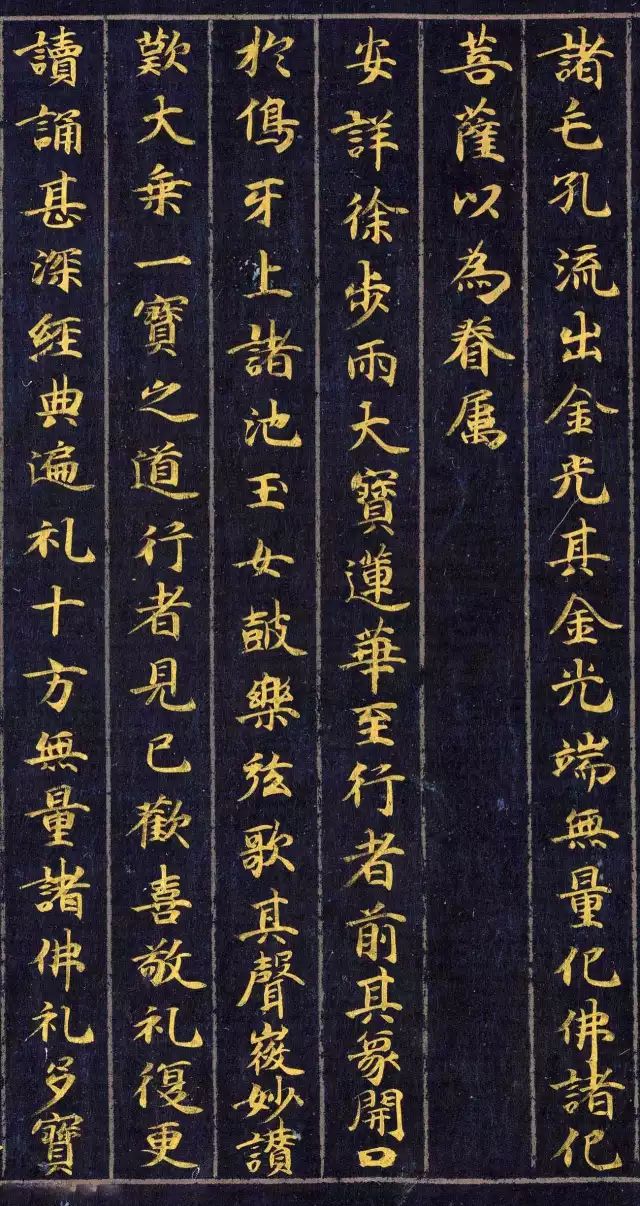 諸毛孔流出金光其金光端無量化佛諸化
菩薩以為眷属
安詳徐步雨大寶蓮華至行者前其象開口
於鳥牙上諸池玉女皷樂弦歌其聲㣲妙讃
歎大乗一寶之道行者見已歡喜敬礼復更
讀誦甚深經典遍礼十方無量諸佛礼多寶